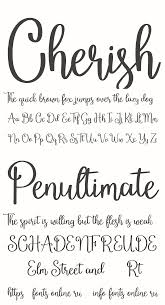 Cherish
The quick brown fox jumps over the lazy dog
Aa Bb Cc Dd Ee Ff Gg Hh Ii Jj Kk Ll Mm
Nn Oo Pp Qq Rr Ss Tt Uu Vv Ww Xx Yy Zz
Penultimate
The spirit is willing but the flesh is weak
SCHADENFREUDE
Elm Street and Rt
https fonts online ru info fonts online ru